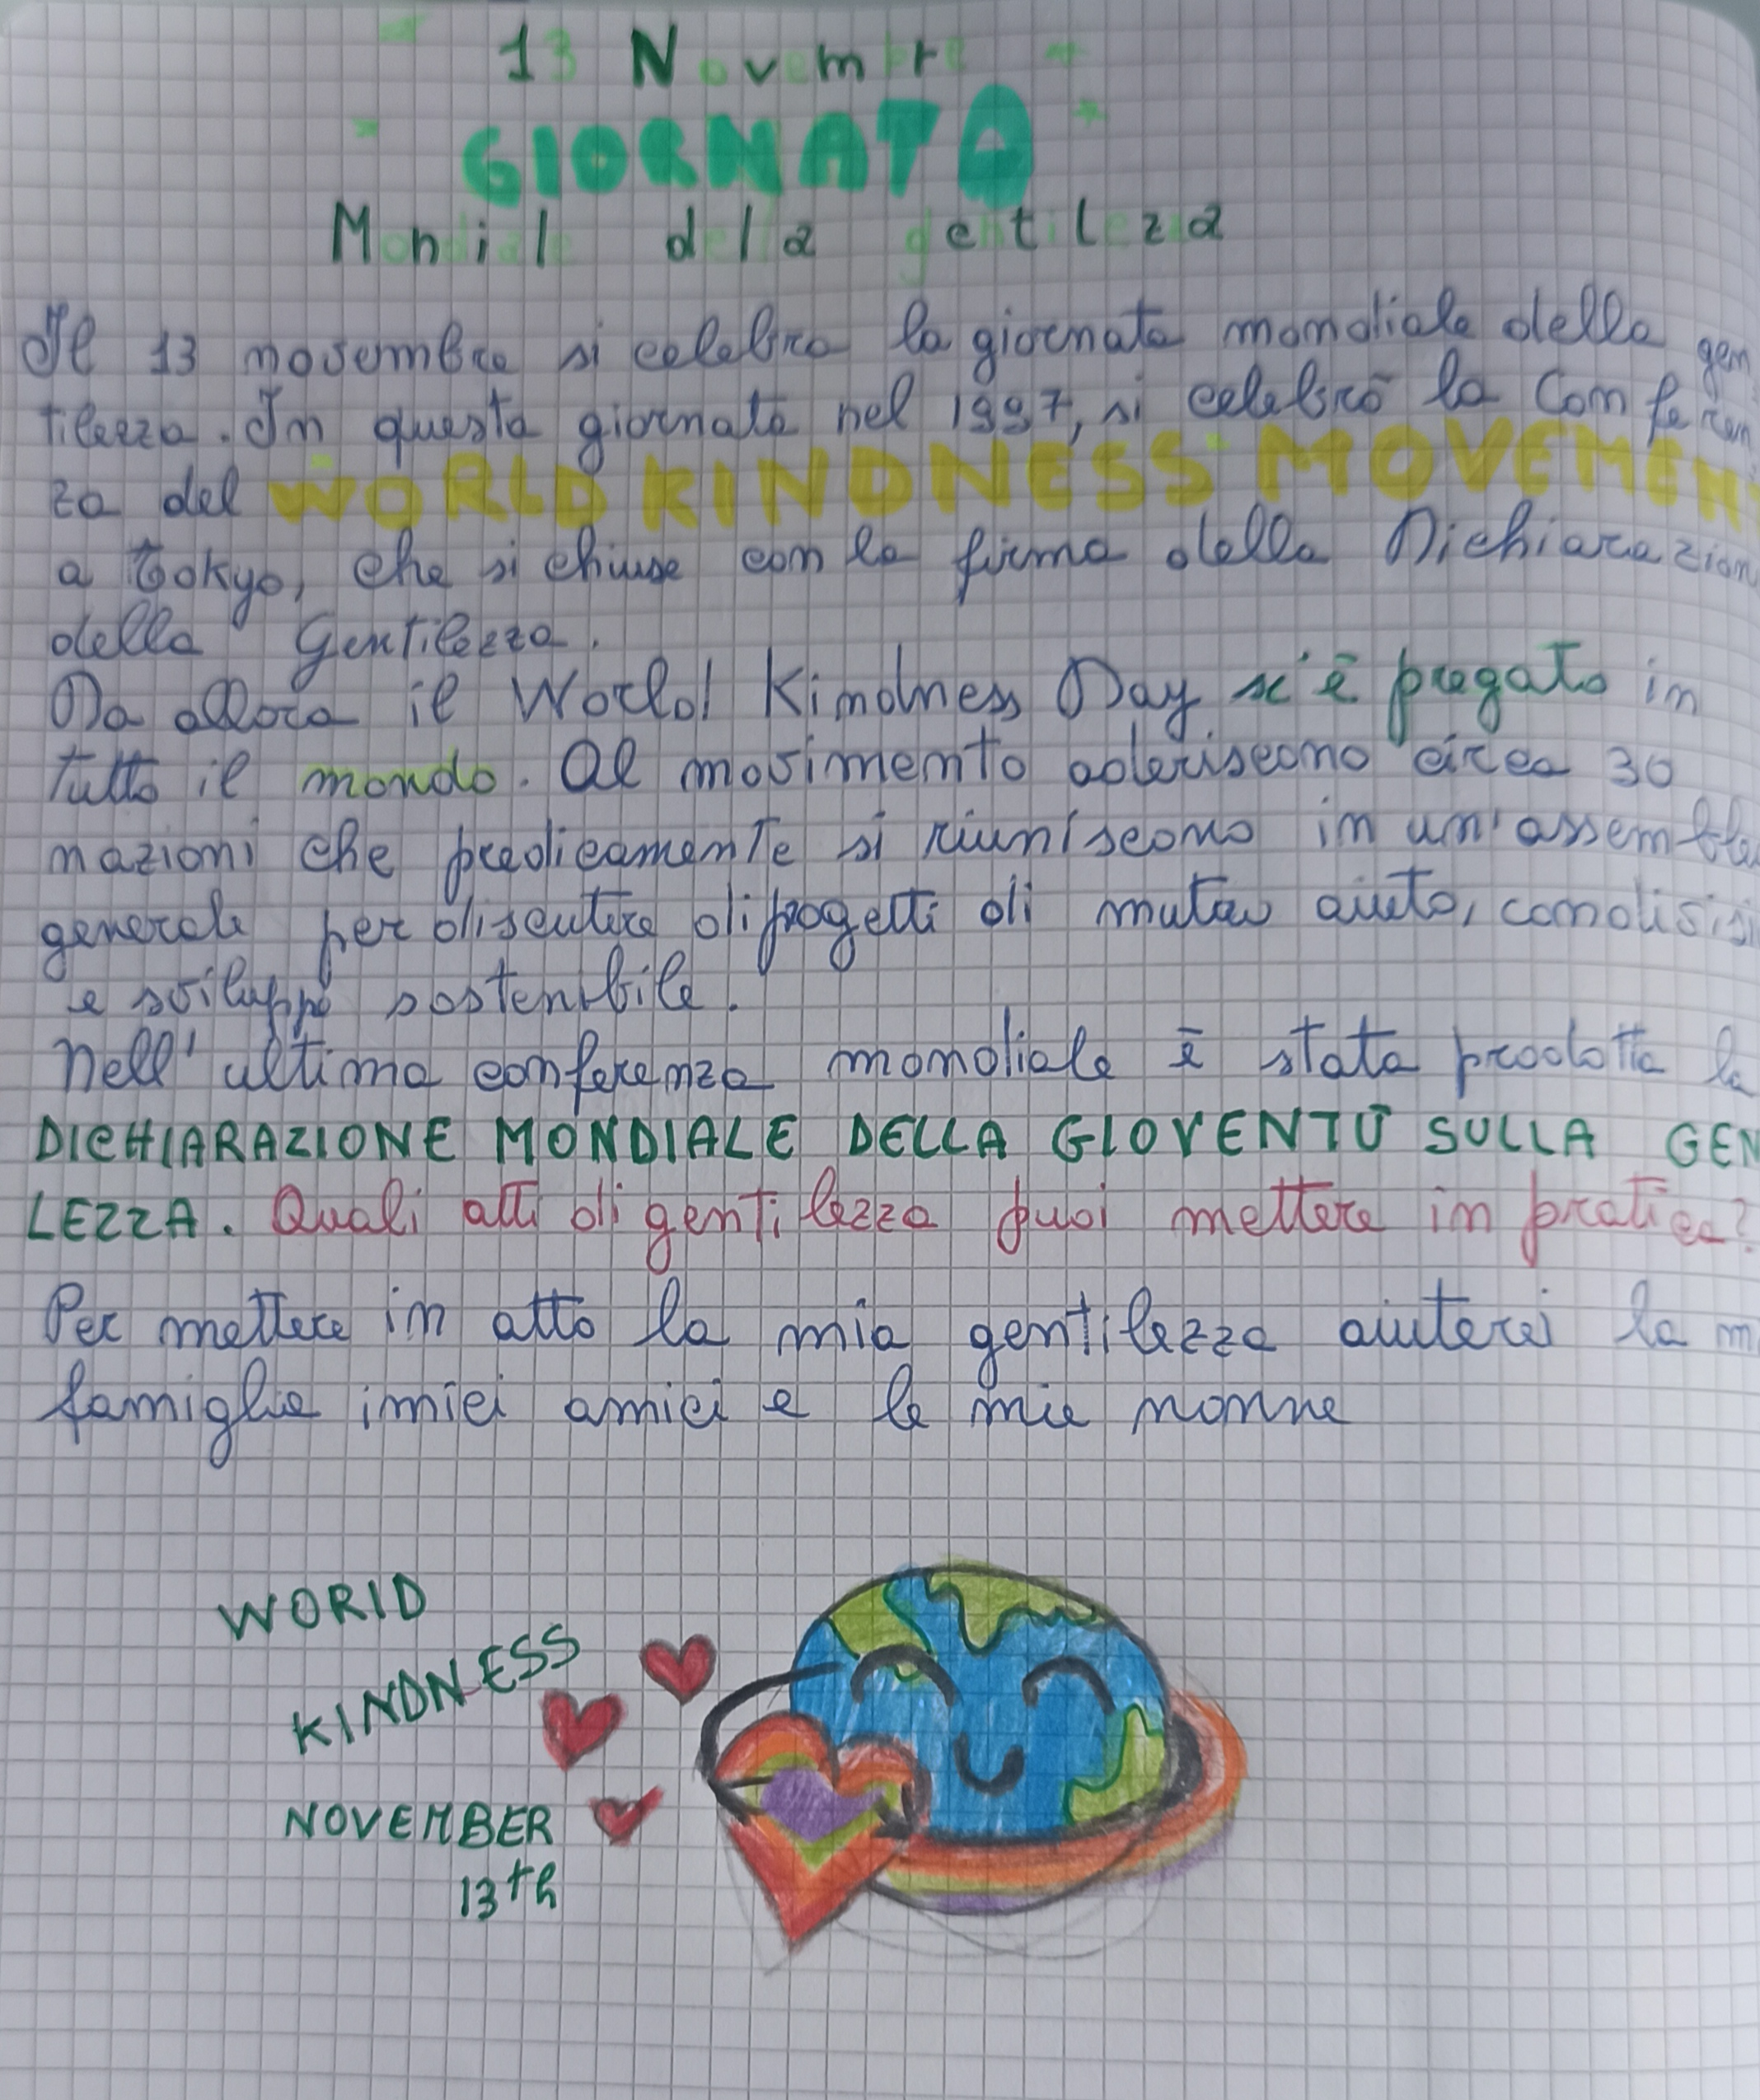 13 Novembre
GIORNATA
Mondiale della gentilezza
Il 13 novembre si celebra la giornata mondiale della gen
tilezza. In questa giornata nel 1997, si celebrò la Conferen
za del WORLD KINDNESS MOVEMEN
a Tokyo, che si chiuse con la firma della Dichiarazion
della Gentilezza.
Da allora il World Kindness Day si è pregato in
tutto il mondo. Al movimento aderiscono circa 30
nazioni che predicamente si riuniscono in un'assemble
generale per discutere di progetti di mutuo aiuto, condivisi
e sviluppo sostenibile.
Nell'ultima conferenza mondiale è stata prodotta la
DICHIARAZIONE MONDIALE DELLA GIOVENTÙ SULLA GEN
LEZZA. Quali atti di gentilezza puoi mettere in pratica?
Per mettere in atto la mia gentilezza aiuterei la m
famiglia i miei amici e le mie nonne
WORID
KINDNESS
NOVEMBER
13th